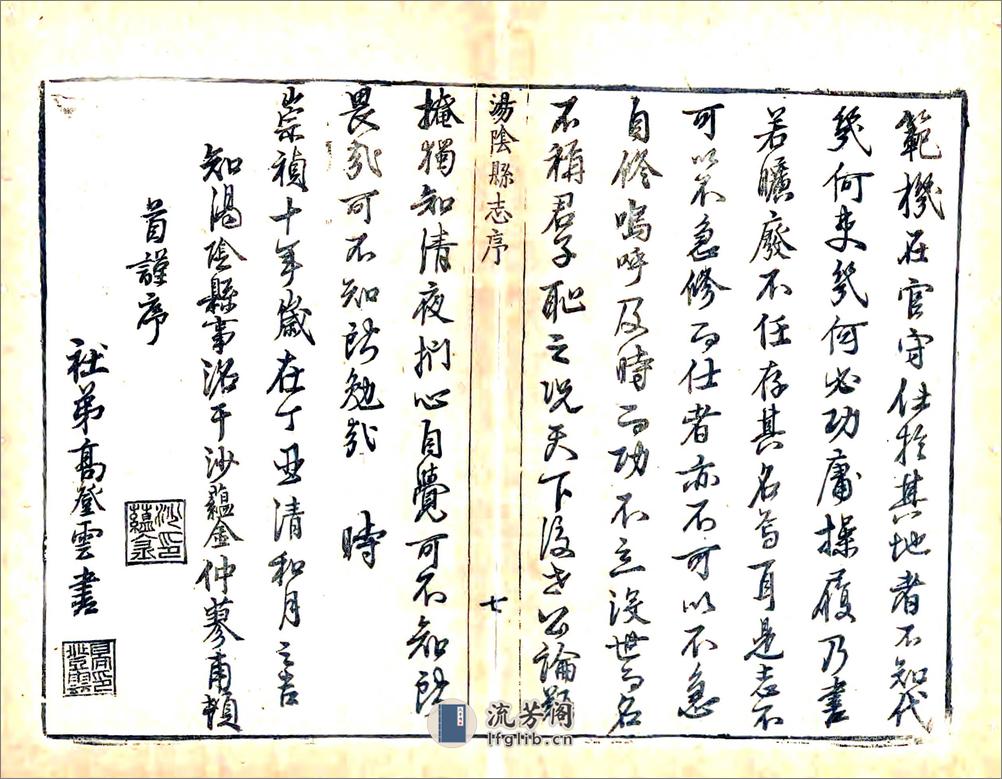 範機在官守仕於其地者不知代
幾何吏幾何必功庸操履乃書
若曠廢不任存其名焉耳是志不
可以不急修而仕者亦不可以不急
自修嗚呼及時而功不立沒世而名
不稱君子恥之況天下後世公論難
湯陰縣志序
七
掩獨知清夜捫心自覺可不知所
畏哉可不知所勉哉 時
崇禎十年歲在丁丑清和月之吉
知湯陰縣事洺干沙蘊金仲蓼甫頓
首謹序
沙印蘊金
社弟高登雲書
高印登雲
流芳阁
lfglib.cn